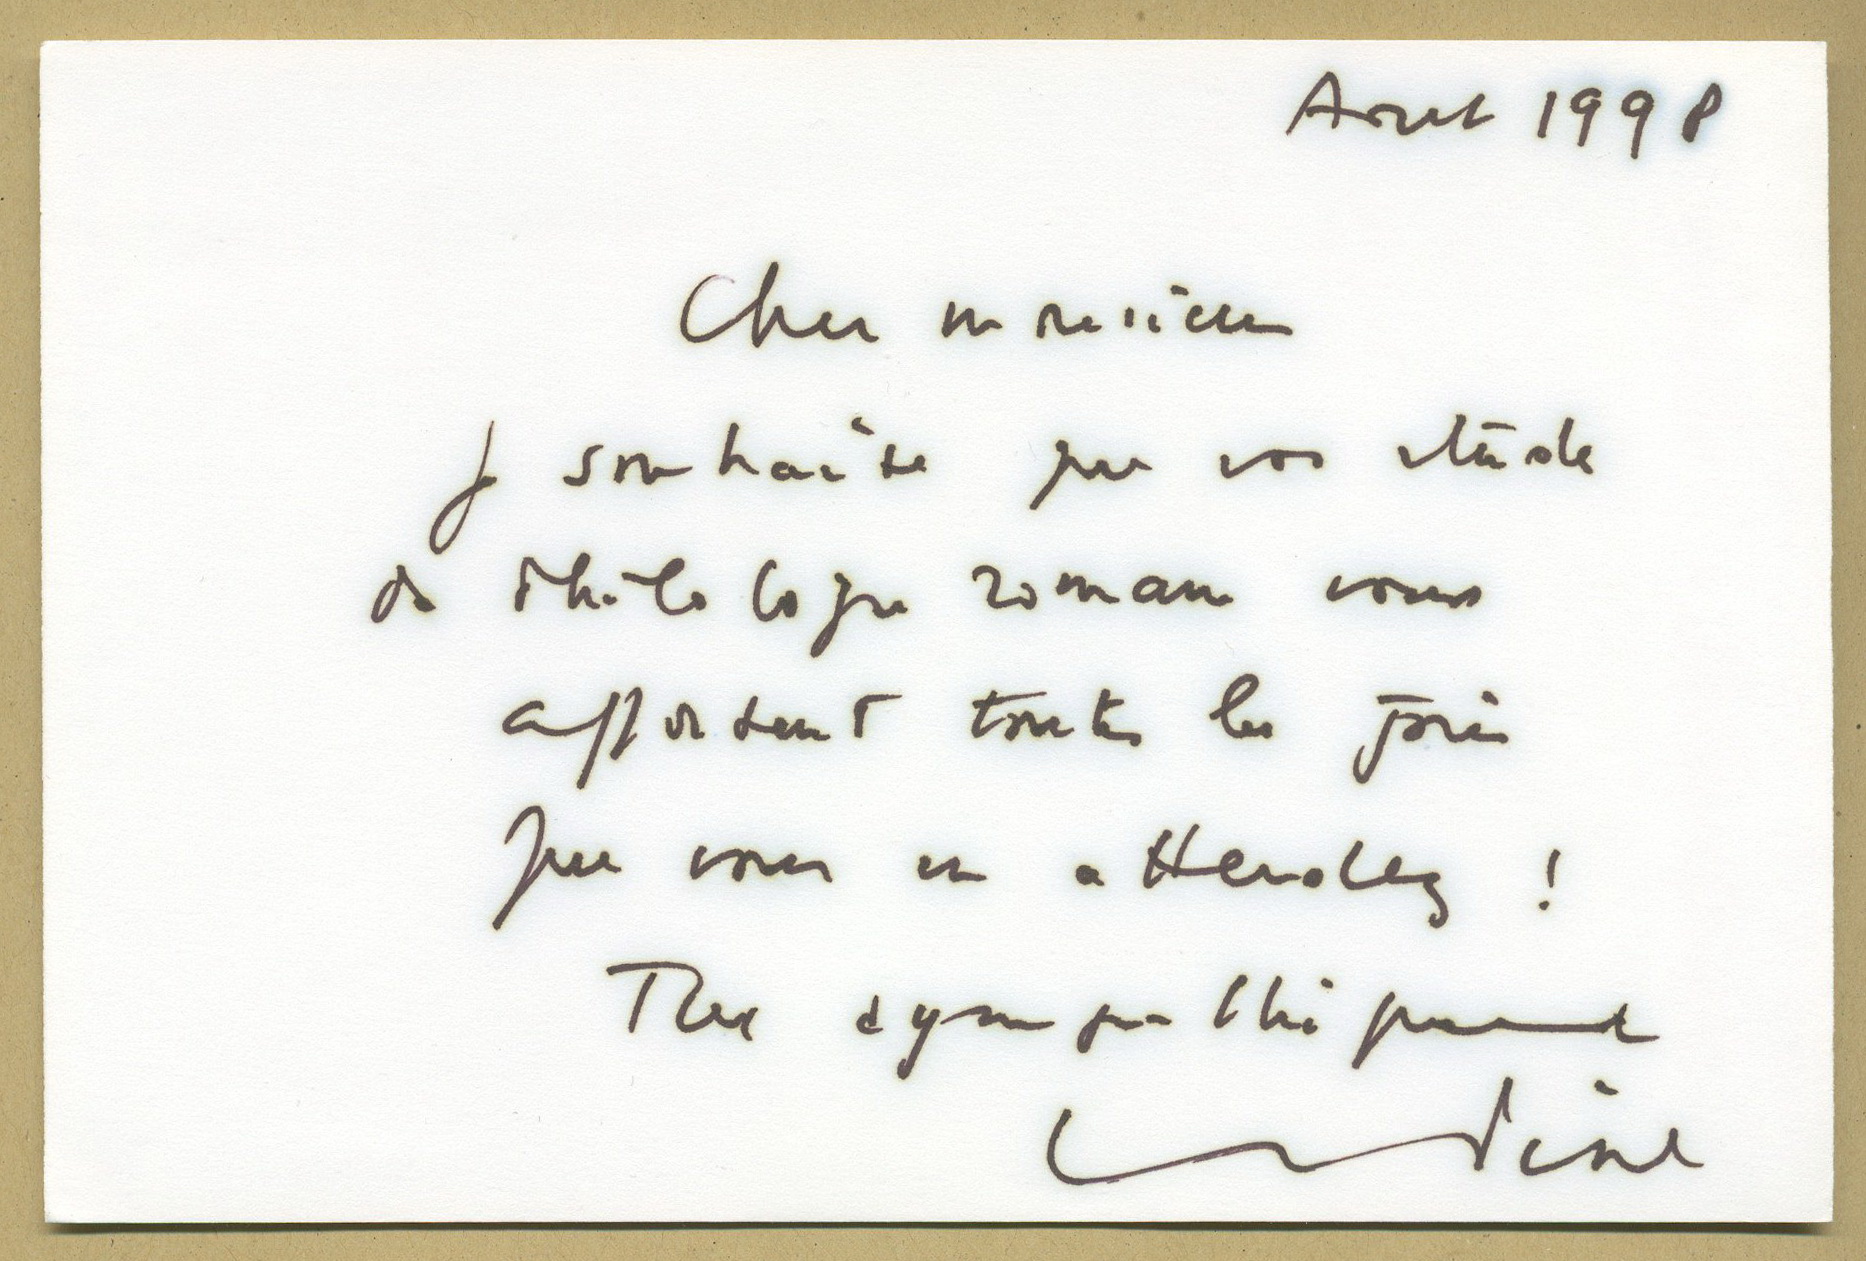 Aout 1998
Cher monsieur
Je souhaite que vos études
de philologie romane vous
apportent toutes les joies
que vous en attendez !
Très sympathiquement